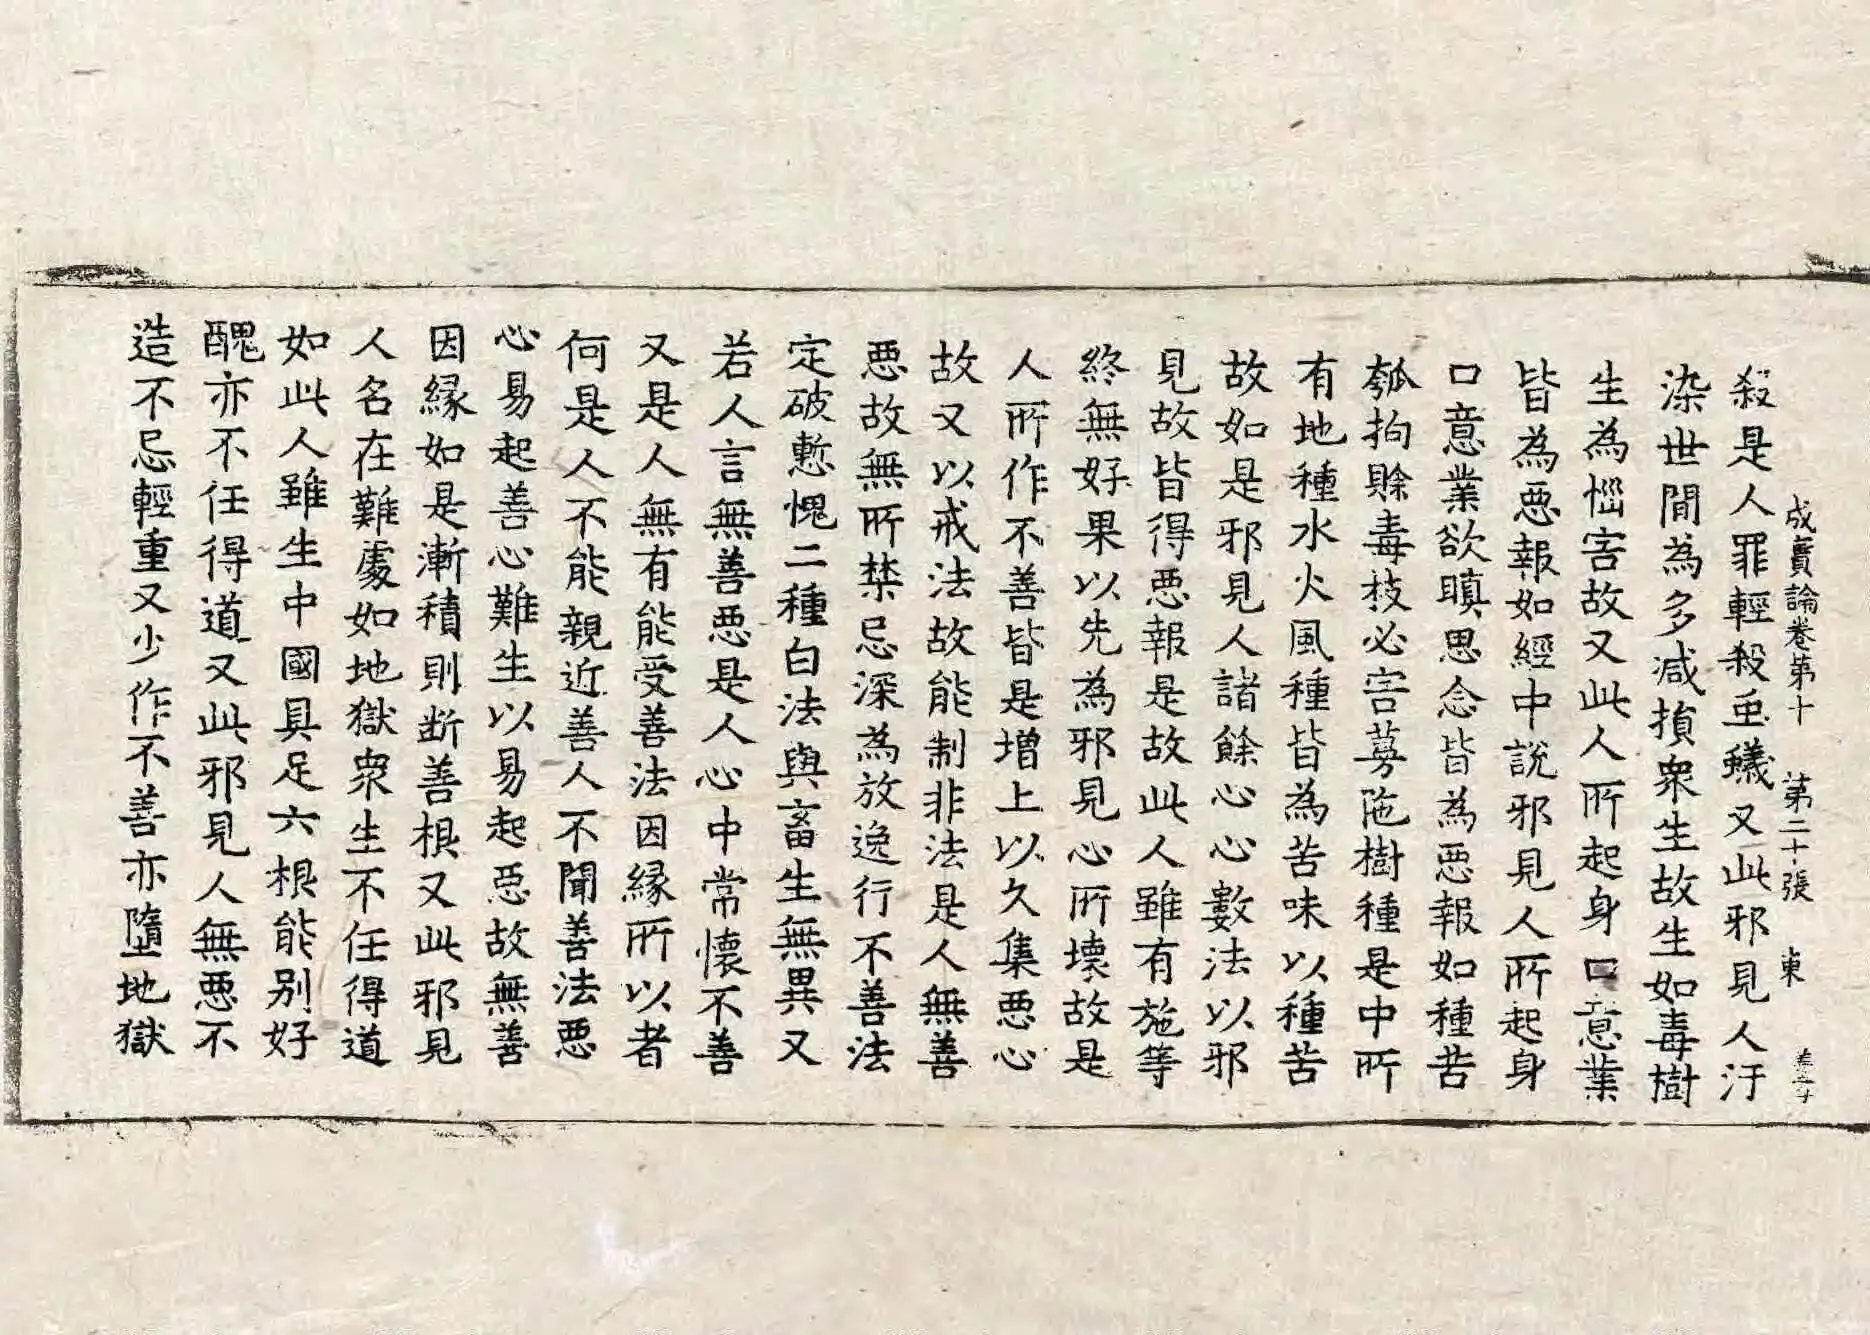 成實論卷第十 第二十張 東
殺是人罪輕殺䖝蟻又此邪見人汙
染世間為多減損衆生故生如毒樹
生為惱害故又此人所起身口意業
皆為惡報如經中說邪見人所起身
口意業欲瞋思念皆為惡報如種苦
瓠拘賒毒枝必害蒡陁樹種是中所
有地種水火風種皆為苦味以種苦
故如是邪見人諸餘心心數法以邪
見故皆得惡報是故此人雖有施等
終無好果以先為邪見心所壞故是
人所作不善皆是增上以久集惡心
故又以戒法故能制非法是人無善
惡故無所禁忌深為放逸行不善法
定破慙愧二種白法與畜生無異又
若人言無善惡是人心中常懷不善
又是人無有能受善法因緣所以者
何是人不能親近善人不聞善法惡
心易起善心難生以易起惡故無善
因緣如是漸積則断善根又此邪見
人名在難處如地獄衆生不任得道
如此人雖生中國具足六根能別好
醜亦不任得道又此邪見人無惡不
造不忌輕重又少作不善亦墮地獄